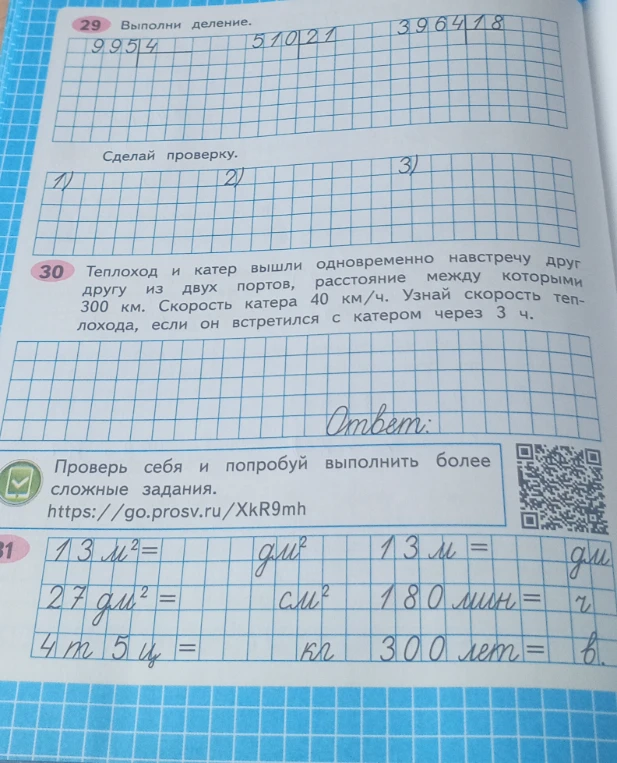 29 Выполни деление.
995 4 510 21 3964 18
Сделай проверку.
1) 2) 3)
30 Теплоход и катер вышли одновременно навстречу друг
другу из двух портов, расстояние между которыми
300 км. Скорость катера 40 км/ч. Узнай скорость теп-
лохода, если он встретился с катером через 3 ч.
Ответ:
Проверь себя и попробуй выполнить более
сложные задания.
https://go.prosv.ru/XkR9mh
31 13 м² = дм² 13 м = дм
27 дм² = см² 180 мин = ч
4 т 5 ц = кг 300 лет = в.